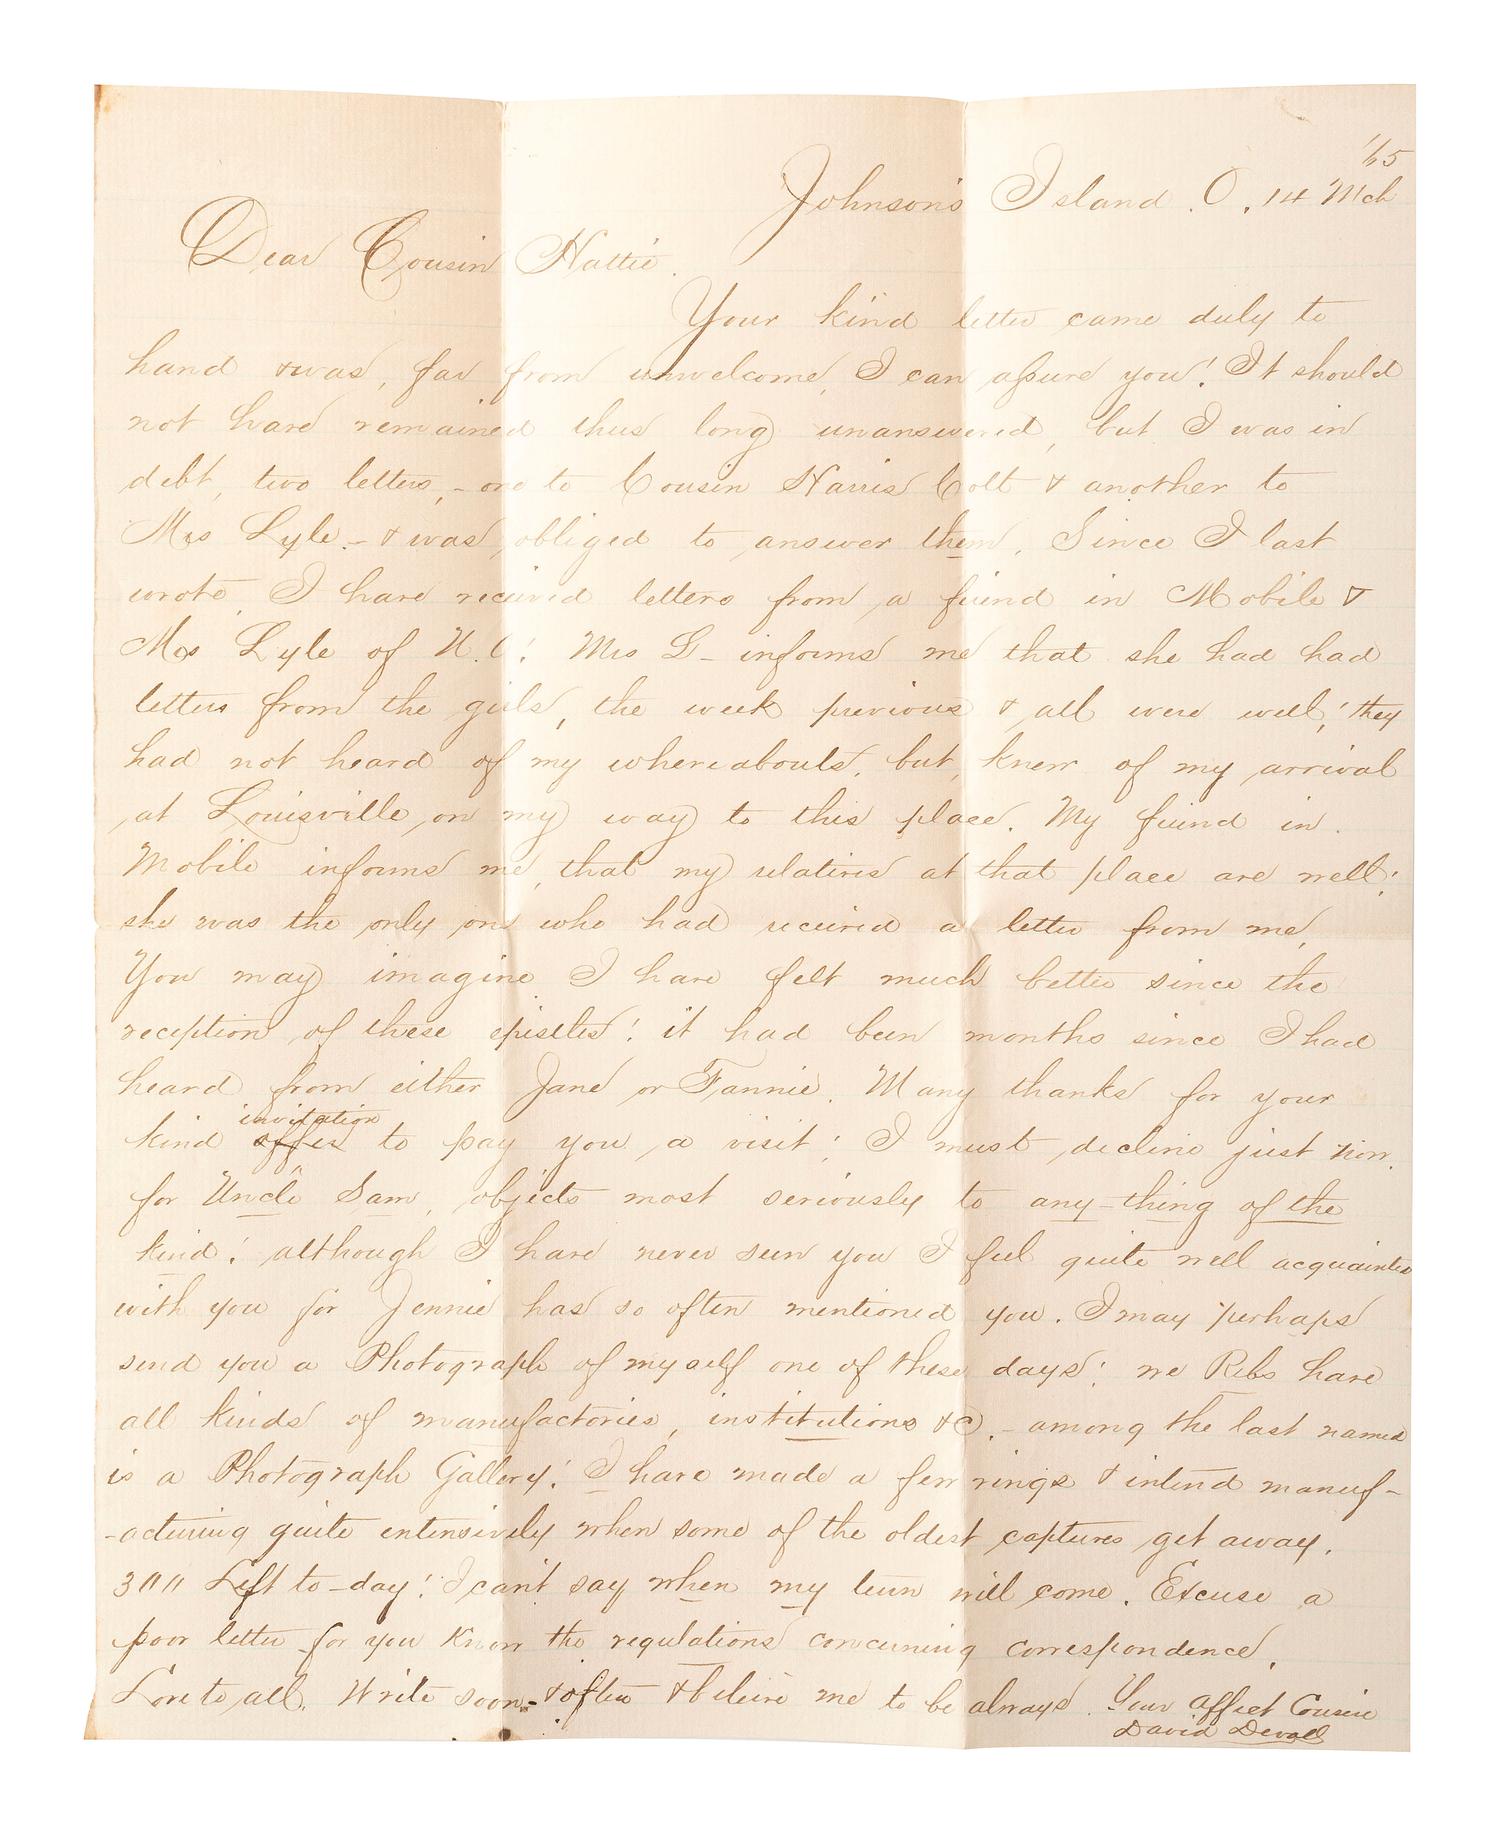 '65
Johnson's Island. O. 14 Mch
Dear Cousin Hattie.
Your kind letter came duly to
hand & was, far from unwelcome, I can assure you! It should
not have remained thus long unanswered, but I was in
debt, two letters, - one to Cousin Harris Colt & another to
Mrs Lyle - & was obliged to answer them. Since I last
wrote, I have received letters from a friend in Mobile &
Mrs Lyle of N.C! Mrs L- informs me that she had had
letters from the girls, the week previous & all were well! they
had not heard of my whereabouts, but, knew of my arrival
at Louisville, on my way to this place. My friend in
Mobile informs me, that my relatives at that place are well!
she was the only one who had received a letter from me,
You may imagine I have felt much better since the
reception of these epistles! it had been months since I had
heard from either Jane or Fannie. Many thanks for your
invitation
kind offer to pay you a visit! I must decline just now.
for Uncle Sam, objects most seriously to any-thing of the
kind! although I have never seen you I feel quite well acquainted
with you for Jennie has so often mentioned you. I may perhaps
send you a Photograph of myself one of these days! we Rebs have
all kinds of manufactories, institutions &c. - among the last named
is a Photograph Gallery! I have made a few rings & intend manuf-
-acturing quite extensively when some of the oldest captures get away.
300 Left to-day! I can't say when my turn will come. Excuse a
poor letter for you know the regulations concerning correspondence.
Love to all. Write soon - & often & believe me to be always. Your affect Cousin
David Devall